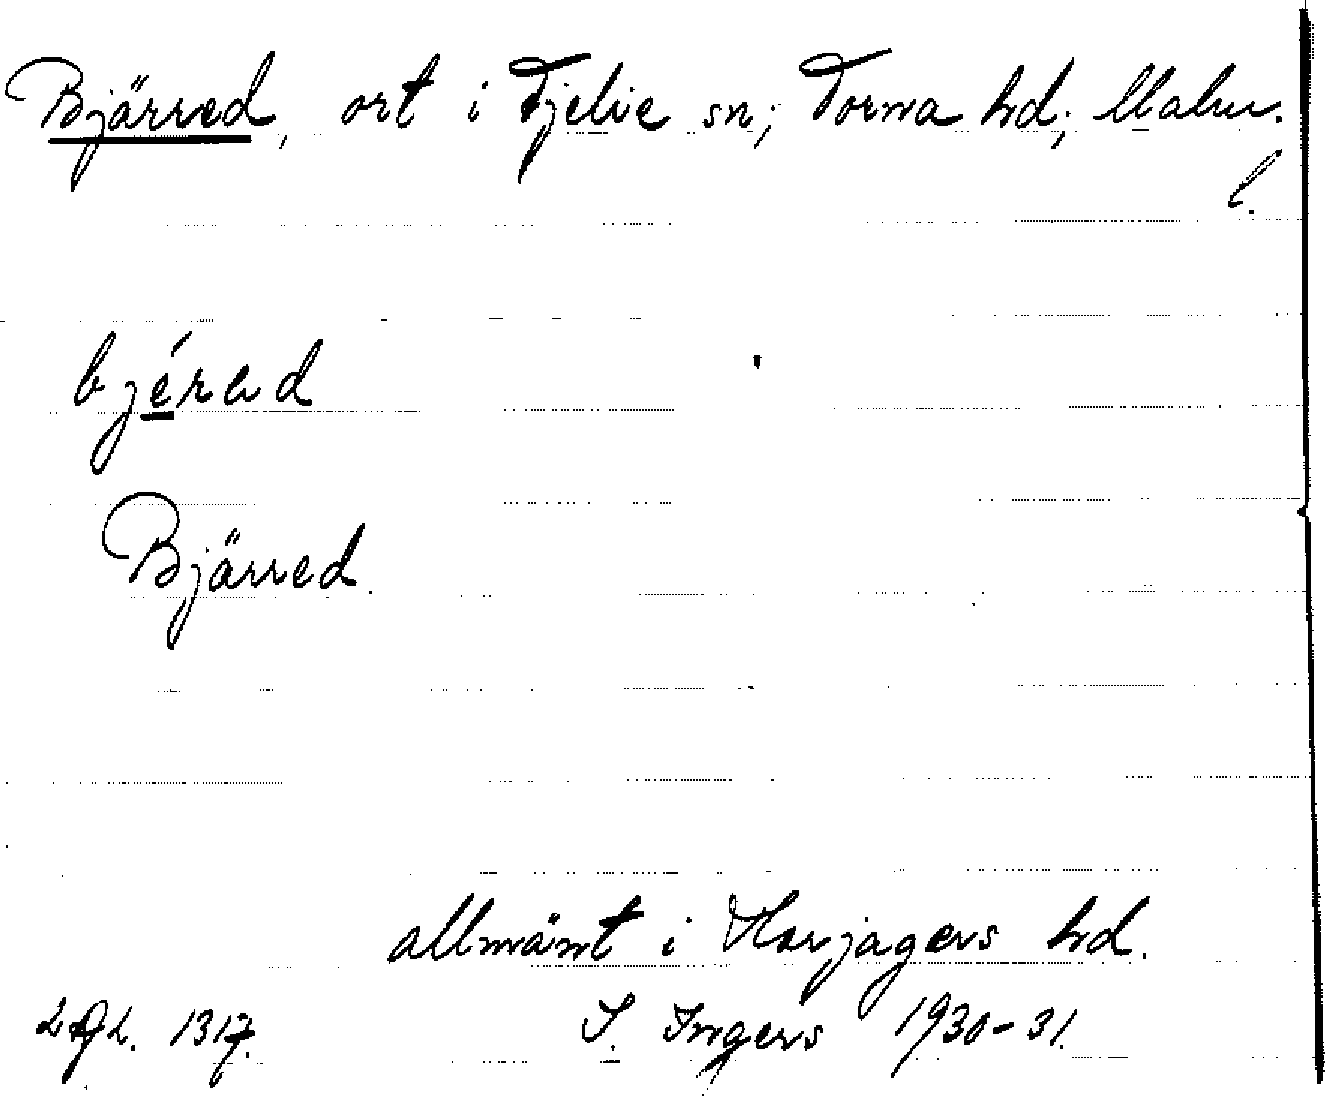 Bjärred, ort i Fjelie sn; Torna hd; Malm.
l.
bjérəd
Bjärred.
allmänt i Harjagers hd.
1317. I. Ingers 1930-31.